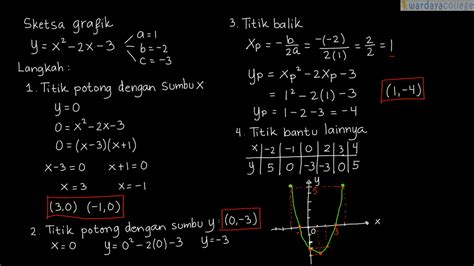 wardayacollege
Sketsa grafik
y = x² - 2x - 3
a = 1
b = -2
c = -3
Langkah :
1. Titik potong dengan sumbu x
y = 0
0 = x² - 2x - 3
0 = (x-3)(x+1)
x - 3 = 0 x + 1 = 0
x = 3 x = -1
(3,0) (-1,0)
2. Titik potong dengan sumbu y : (0,-3)
x = 0 y = 0² - 2(0) - 3 y = -3
3. Titik balik
xp = -b/2a = -(-2)/2(1) = 2/2 = 1
yp = xp² - 2xp - 3
= 1² - 2(1) - 3
yp = 1 - 2 - 3 = -4
(1,-4)
4. Titik bantu lainnya
x -2 -1 0 2 3 4
y 5 0 -3 -3 0 5
y
5
0
3
x